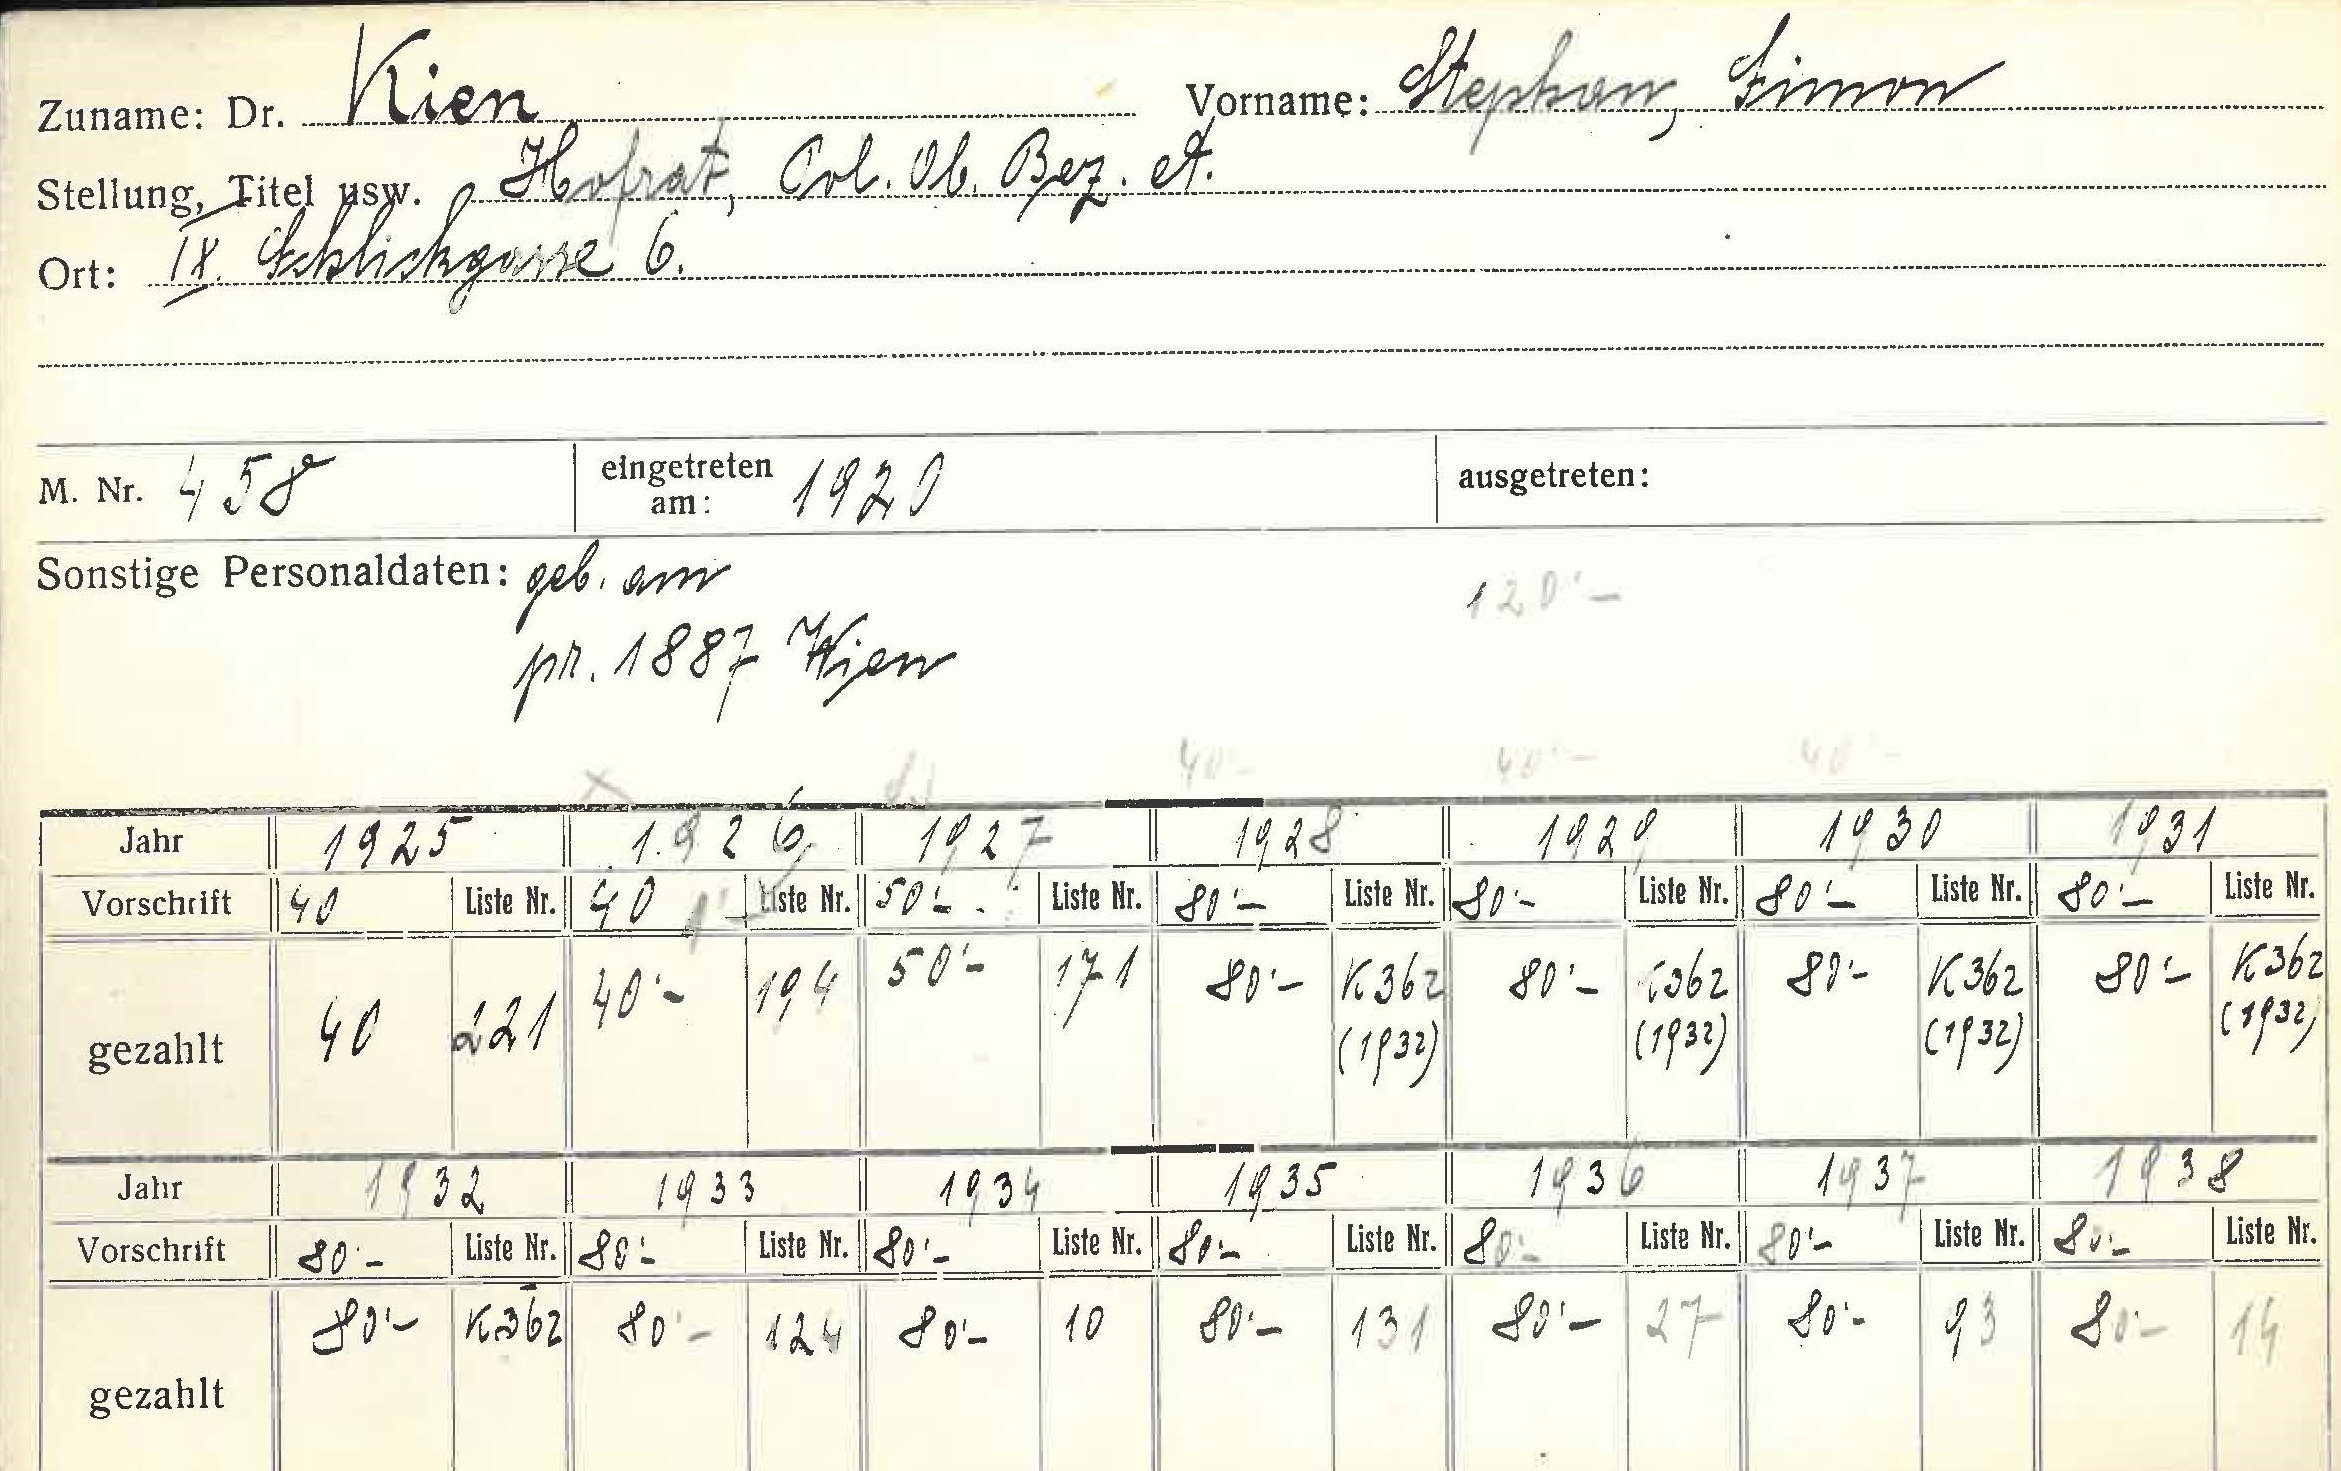 Zuname: Dr. Kien Vorname: Stephan, Simon
Stellung, Titel usw. Hofrat, Pol. Ob. Bez. A.
Ort: IX. Schlickgasse 6.
M. Nr. 458 eingetreten am: 1920 ausgetreten:
Sonstige Personaldaten: geb. am
120'-
pr. 1887 Wien
40'- 40'- 40'-
Jahr 1925 1926 1927 1928 1929 1930 1931
Vorschrift 40 Liste Nr. 40 Liste Nr. 50'- Liste Nr. 80'- Liste Nr. 80'- Liste Nr. 80'- Liste Nr. 80'- Liste Nr.
gezahlt 40 221 40'- 194 50'- 171 80'- K362 80'- K362 80'- K362 80'- K362
(1932) (1932) (1932) (1932)
Jahr 1932 1933 1934 1935 1936 1937 1938
Vorschrift 80'- Liste Nr. 80'- Liste Nr. 80'- Liste Nr. 80'- Liste Nr. 80'- Liste Nr. 80'- Liste Nr. 80'- Liste Nr.
gezahlt 80'- K362 80'- 124 80'- 10 80'- 131 80'- 27 80'- 93 80'- 14